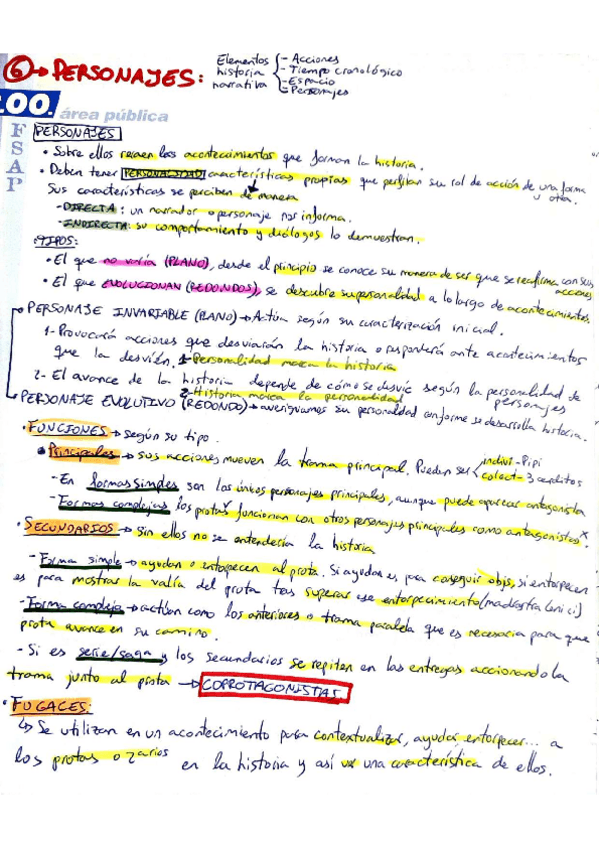 ⑥→ PERSONAJES: Elementos historia narrativa { - Acciones - Tiempo cronológico - Espacio - Personajes
.OO. área pública
FSAP
PERSONAJES
• Sobre ellos recaen los acontecimientos que forman la historia.
• Deben tener PERSONALIDAD características propias que perfilan su rol de acción de una forma u otra.
Sus características se perciben de manera
- DIRECTA: un narrador o personaje nos informa.
- INDIRECTA: su comportamiento y diálogos lo demuestran.
TIPOS:
• El que no varía (PLANO), desde el principio se conoce su manera de ser que se reafirma con sus acciones
• El que EVOLUCIONAN (REDONDOS), se descubre su personalidad a lo largo de acontecimientos
PERSONAJE INVARIABLE (PLANO) → Actúa según su caracterización inicial.
1- Provocará acciones que desviarán la historia o responderá ante acontecimientos
que la desvíen. 1- Personalidad marca la historia
2- El avance de la historia depende de cómo se desvíe según la personalidad de personajes
2- Historia marca la personalidad
PERSONAJE EVOLUTIVO (REDONDO) → averiguamos su personalidad conforme se desarrolla historia.
• FUNCIONES → según su tipo.
• Principales → sus acciones mueven la trama principal. Pueden ser indivi - Pipi colect - 3 cerditos
- En formas simples son los únicos personajes principales, aunque puede aparecer antagonista
- Formas complejas los protas funcionan con otros personajes principales como antagonistas.
• SECUNDARIOS → Sin ellos no se entendería la historia
- Forma simple → ayudan o entorpecen al prota. Si ayudan es para conseguir objs, si entorpecen
es para mostrar la valía del prota tras superar ese entorpecimiento (madrastra
- Forma compleja → actúan como los anteriores o trama paralela que es necesaria para que
prota avance en su camino.
- Si es serie/saga y los secundarios se repiten en las entregas accionando la
trama junto al prota → COPROTAGONISTAS.
• FUGACES:
↳ Se utilizan en un acontecimiento para contextualizar, ayudar, entorpecer... a
los protas o 2arios en la historia y así ver una característica de ellos.